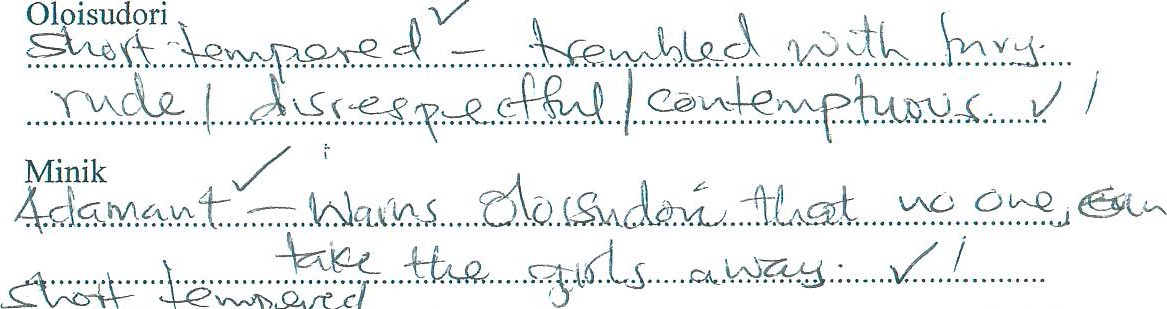 Oloisudori
Short tempered ✓ – trembled with fury.
rude / disrespectful / contemptuous. ✓ /
Minik
Adamant ✓ – Warns Oloisudori that no one, can
take the girls away. ✓ /
Short tempered